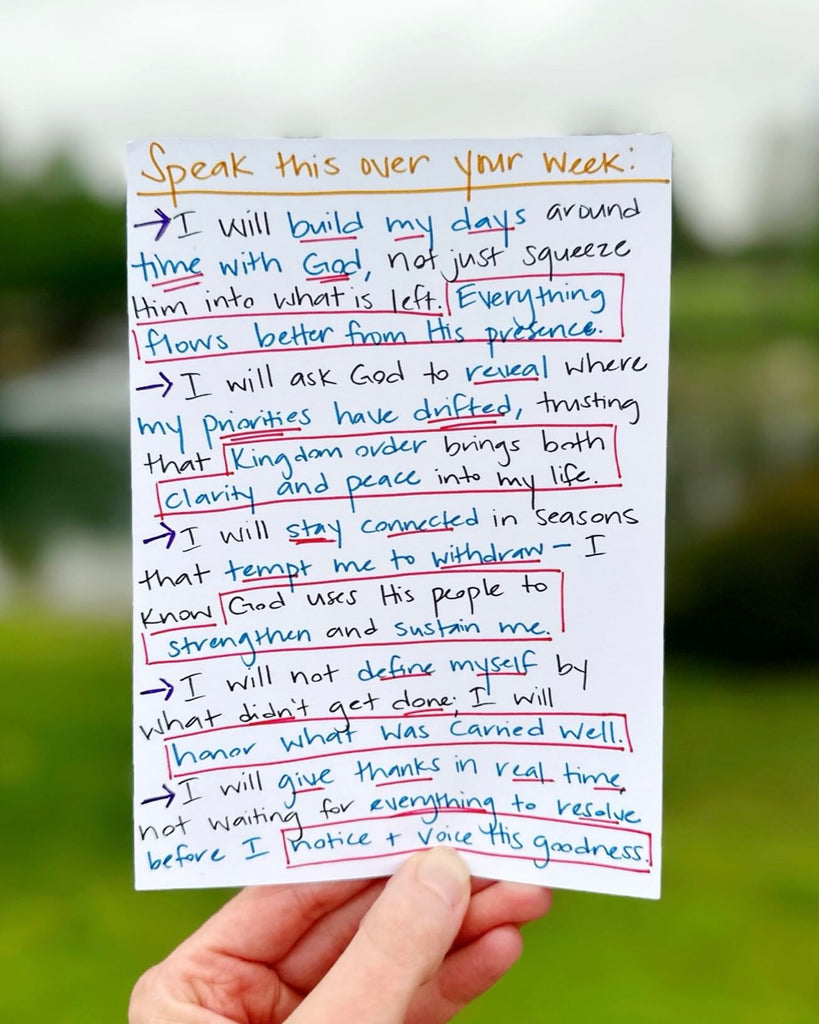 Speak this over your week:
→ I will build my days around
time with God, not just squeeze
Him into what is left. Everything
flows better from His presence.
→ I will ask God to reveal where
my priorities have drifted, trusting
that Kingdom order brings both
clarity and peace into my life.
→ I will stay connected in seasons
that tempt me to withdraw - I
know God uses His people to
strengthen and sustain me.
→ I will not define myself by
what didn't get done; I will
honor what was carried well.
→ I will give thanks in real time,
not waiting for everything to resolve
before I notice + voice His goodness.